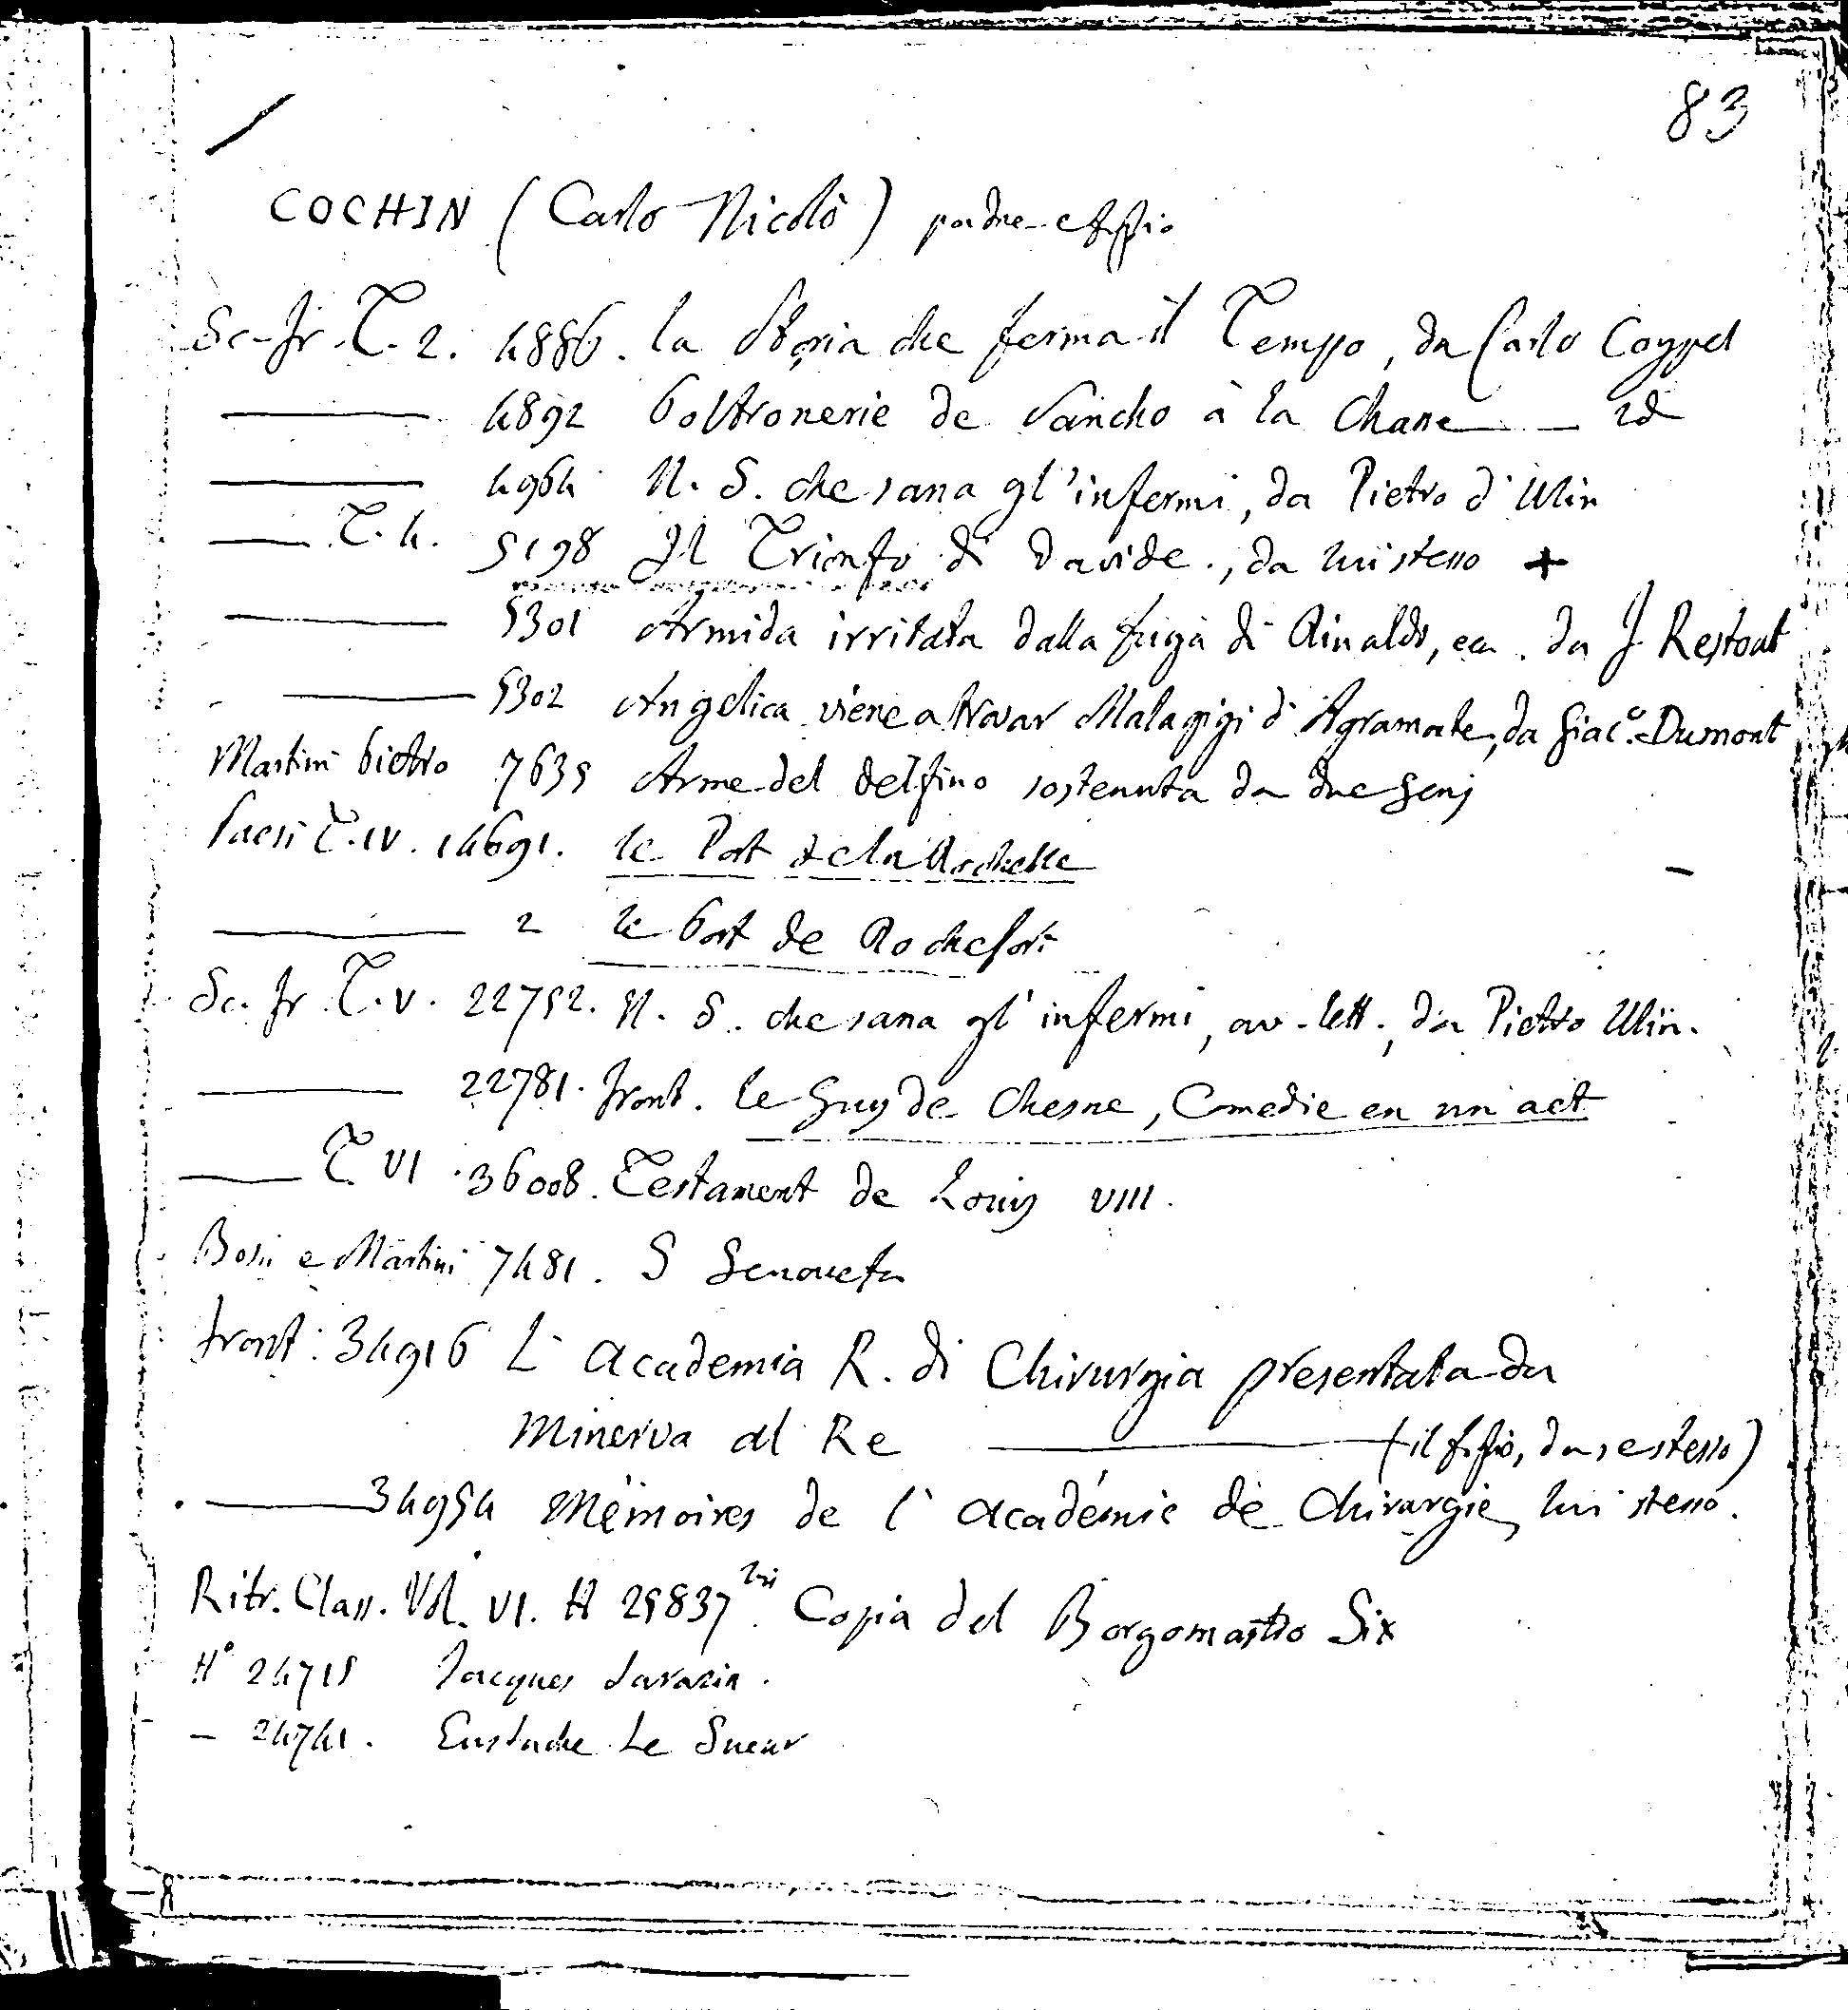 83
COCHIN (Carlo Nicolò) padre e figlio
Sc. fr. T. 2. 4886. la Storia che ferma il Tempo, da Carlo Coypel
4892 Poltronerie de Sancho à la Chasse — id
4964 N. S. che sana gl'infermi, da Pietro d'Ulin
T. 4. 5198 Il Trionfo di Davide, da lui stesso +
5301 Armida irritata dalla fuga di Rinaldo, ea. da J Restout
5302 Angelica viene a trovar Malagigi d'Agramonte, da Giac.o Dumont
Martini Pietro 7635 Arme del delfino sostenuta da due Genj
Paesi T. IV. 14691. le Port de la Rochelle
2 le Port de Rochefort
Sc. fr. T. V. 22752. N. S. che sana gl'infermi, av. lett., da Pietro Ulin.
22781. front. le Guy de Chesne, Comedie en un act
T. VI. 36008. Testament de Louis VIII.
Bosii e Martini 7481. S Genovefa
front: 34916 L'Academia R. di Chirurgia presentata da
Minerva al Re — (il figlio, da se stesso)
34954 Mémoires de l'Académie de Chirurgie, lui stesso.
Ritr. Class. Vol. VI. N 25837 bis Copia del Borgomastro Six
N° 24715 Jacques Sarazin.
— 24741. Eustache Le Sueur